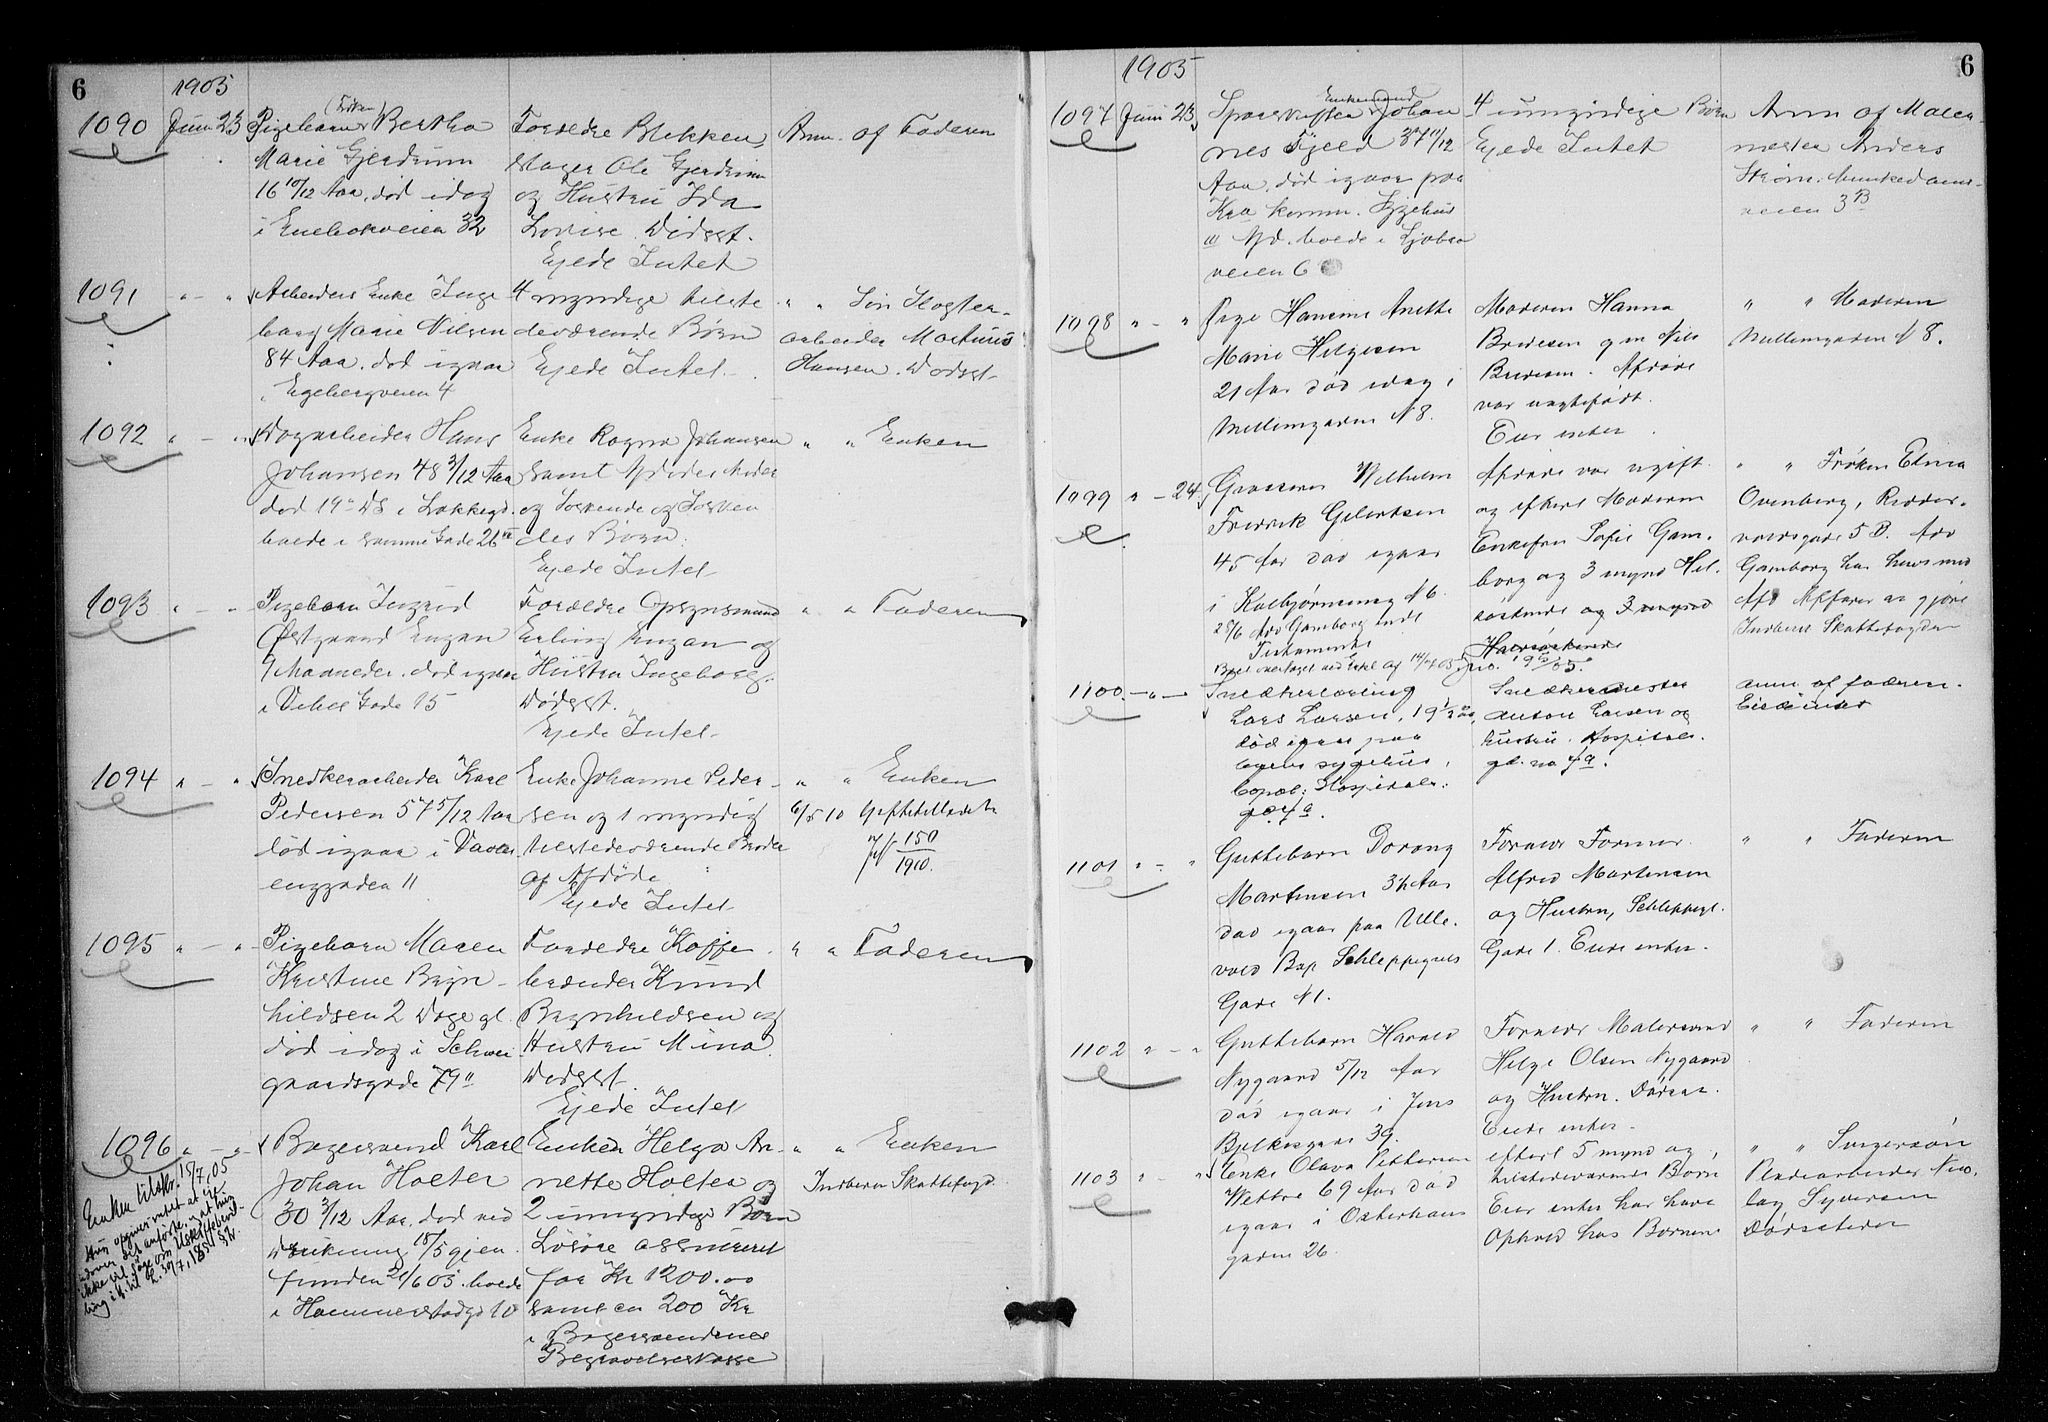 6
1905
1090 Juni 23 Pigebarn (Frøken) Bertha
Marie Gjerdrum
16 10/12 Aar, død idag
i Enebakveien 32
Forældre Blikken-
slager Ole Gjerdrum
og Hustru Ida
Lovise. Dødsst.
Ejede Intet
Anm. af Faderen
1091 " — " Arbeiders Enke Inge-
borg Marie Nilsen
84 Aar, død igaar
i Egebergveien 4
4 myndige tilste-
deværende Børn
Ejede Intet
" " Søn
arbeider Martinius
Hansen. Dødsst.
1092 " — " Dagarbeider Hans
Johansen 48 3/12 Aar
død 19de ds i Lakkegd.
boede i samme Gade 26
Enke Ragna Johansen
samt Afdødes Moder
og Søskende og Søsken-
des Børn.
Ejede Intet
" " Enken
1093 " — " Pigebarn Ingrid
Østgaard Engan
9 Maaneder. død igaar
i Vibes Gade 15
Forældre Opsynsmand
Erling Engan og
Hustru Ingeborg.
Dødsst.
Ejede Intet
" " Faderen
1094 " — " Snedkerarbeider Karl
Pedersen 57 5/12 Aar
død igaar i Vaaler-
enggaden 11
Enke Johanne Peder-
sen og 1 myndig
tilstedeværende Broder
af Afdøde
Ejede Intet
" " Enken
6/5 10
150
1910.
1095 " — " Pigebarn Maren
Kristine Bryn-
hildsen 2 Dage gl.
død idag i Schwei-
gaardsgade 79
Forældre Kaffe-
brænder Knud
Brynhildsen og
Hustru Mina.
Dødsst.
Ejede Intet
" " Faderen
1096 " — " Bagersvend Karl
Johan Holter
30 3/12 Aar, død ved
Drukning 18/5 gjen-
funden 21/6 05. boede
i Hammerstadgd 10
Enken Helga An-
nette Holter og
2 umyndige Børn
Løsøre assureret
for Kr 1200.00
samt ca 200 Kr
i Bagersvendenes
Begravelseskasse
" " Enken
Indberet. Skattefogd
Enken tilskr. 15/7, 05
6
1905
1097 Juni 23 Enkemand
Johan-
nes Fjeld 37 11/12
Aar, død igaar paa
Kra komm. Sygehus
III Afd. boede i Ljabro
veien 6
4 umyndige Børn
Ejede Intet
Anm af Maler-
mester Anders
Strøm. Munkedams-
veien 3B
1098 " — " Pige Hansine Anette
Marie Helgesen
21 Aar død idag i
Mellemgaden N 8.
Moderen Hanna
Bredesen gm Nils
Bredesen. Afdøde
var uægtefødt.
Eier intet.
" " Moderen
Mellemgaden N 8.
1099 " — 24 Grosserer Wilhelm
Fredrik Gilertsen
45 Aar død igaar
i Kolbjørnsvig N 6.
Adv Gamborg indl
Testamente
Afdøde var ugift
og efterl Moderen
Enkefru Sofie Gam-
borg og 3 mynd Hel-
søskende og 3 mynd
Halvsøskende
" " Frøken Edma
Ovenberg, Ridder-
voldsgade 5 B. Adv
Gamborg har hus med
Afd Affærer at gjøre
Indberet Skattefogden
1100. — " — Snedkerlærling
Lars Larsen, 19 1/2 aar,
død igaar paa
byens sygehus,
bopæl: Hospitals-
gd. 7 a.
Snedkermester
Anton Larsen og
hustru. Hospitals-
gd. no 7 a.
anm. af faderen.
Eiede intet
1101 " — " Guttebarn Dorang
Martinsen 3 1/2 Aar
død igaar paa Ulle-
vold Bop Schleppegrels
Gade N 1.
Forældr Former
Alfred Martinsen
og Hustru, Schleppegl.
Gade 1. Eiede intet.
" " Faderen
1102 " — " Guttebarn Harald
Nygaard 5/12 Aar
død igaar i Jens
Bjelkesgade 39.
Forældr Malersvend
Helge Olsen Nygaard
og Hustru. Dødsst.
Eiede intet.
" " Faderen
1103 " — " Enke Olava Pettersen
Wettre 69 Aar død
igaar i Osterhaus
gaden 26.
efterl 5 mynd og
tilstedeværende Børn
Eier intet har havt
Ophold hos Børnene
" " Svigersøn
Pladearbeider Nico-
lay Syversen
Dødsstedet